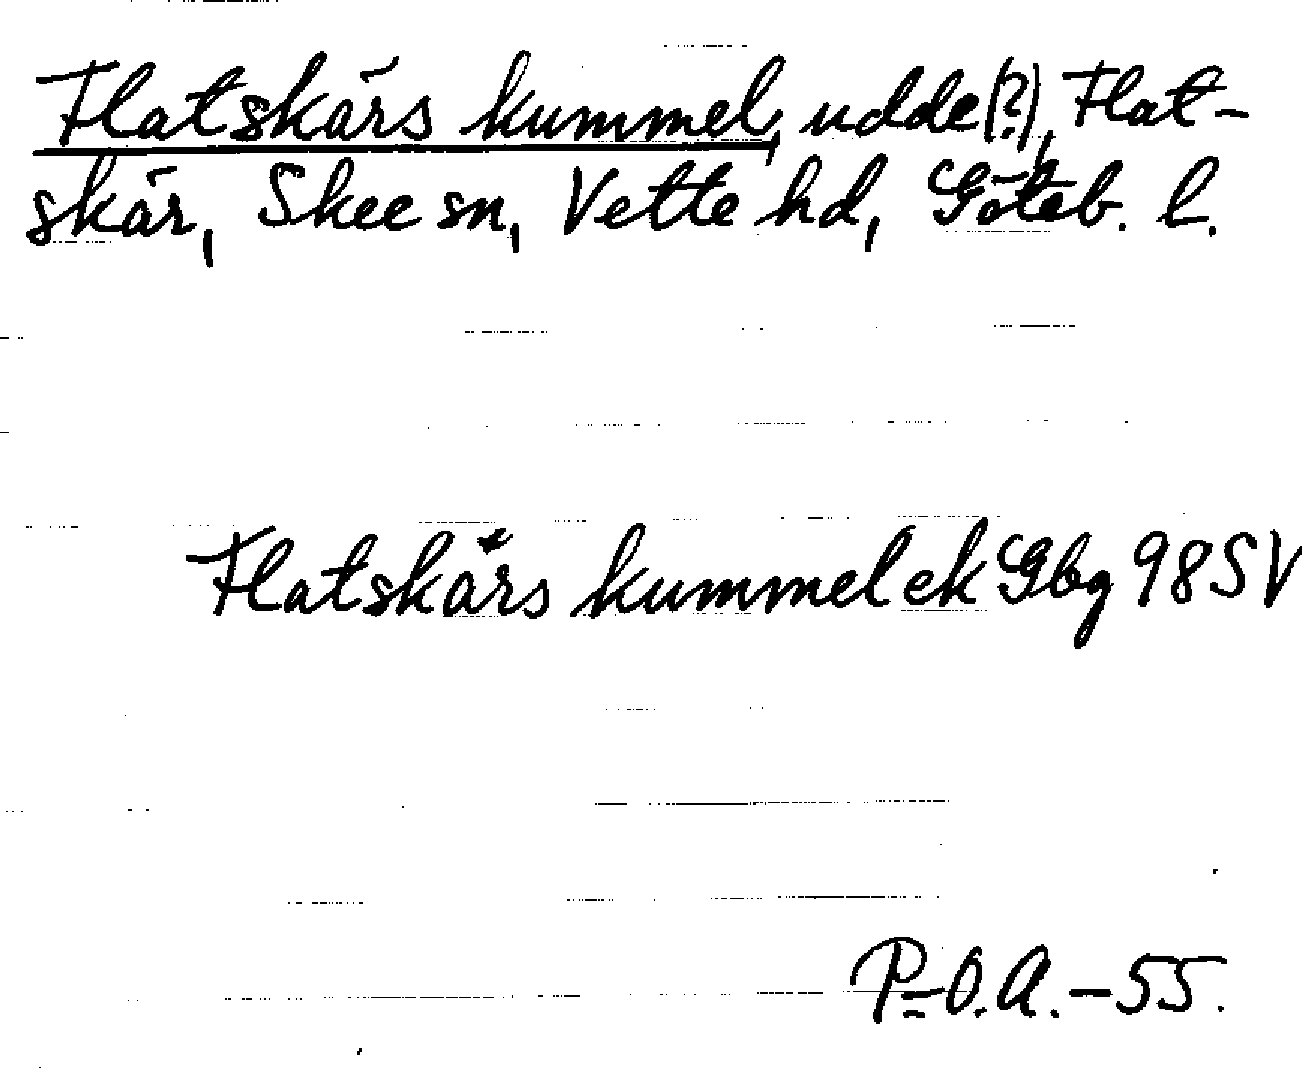 Flatskärs kummel, udde(?), Flat-
skär, Skee sn, Vette hd, Göteb. l.
Flatskärs kummel ek Gbg 98 SV
P-O.A. -55.